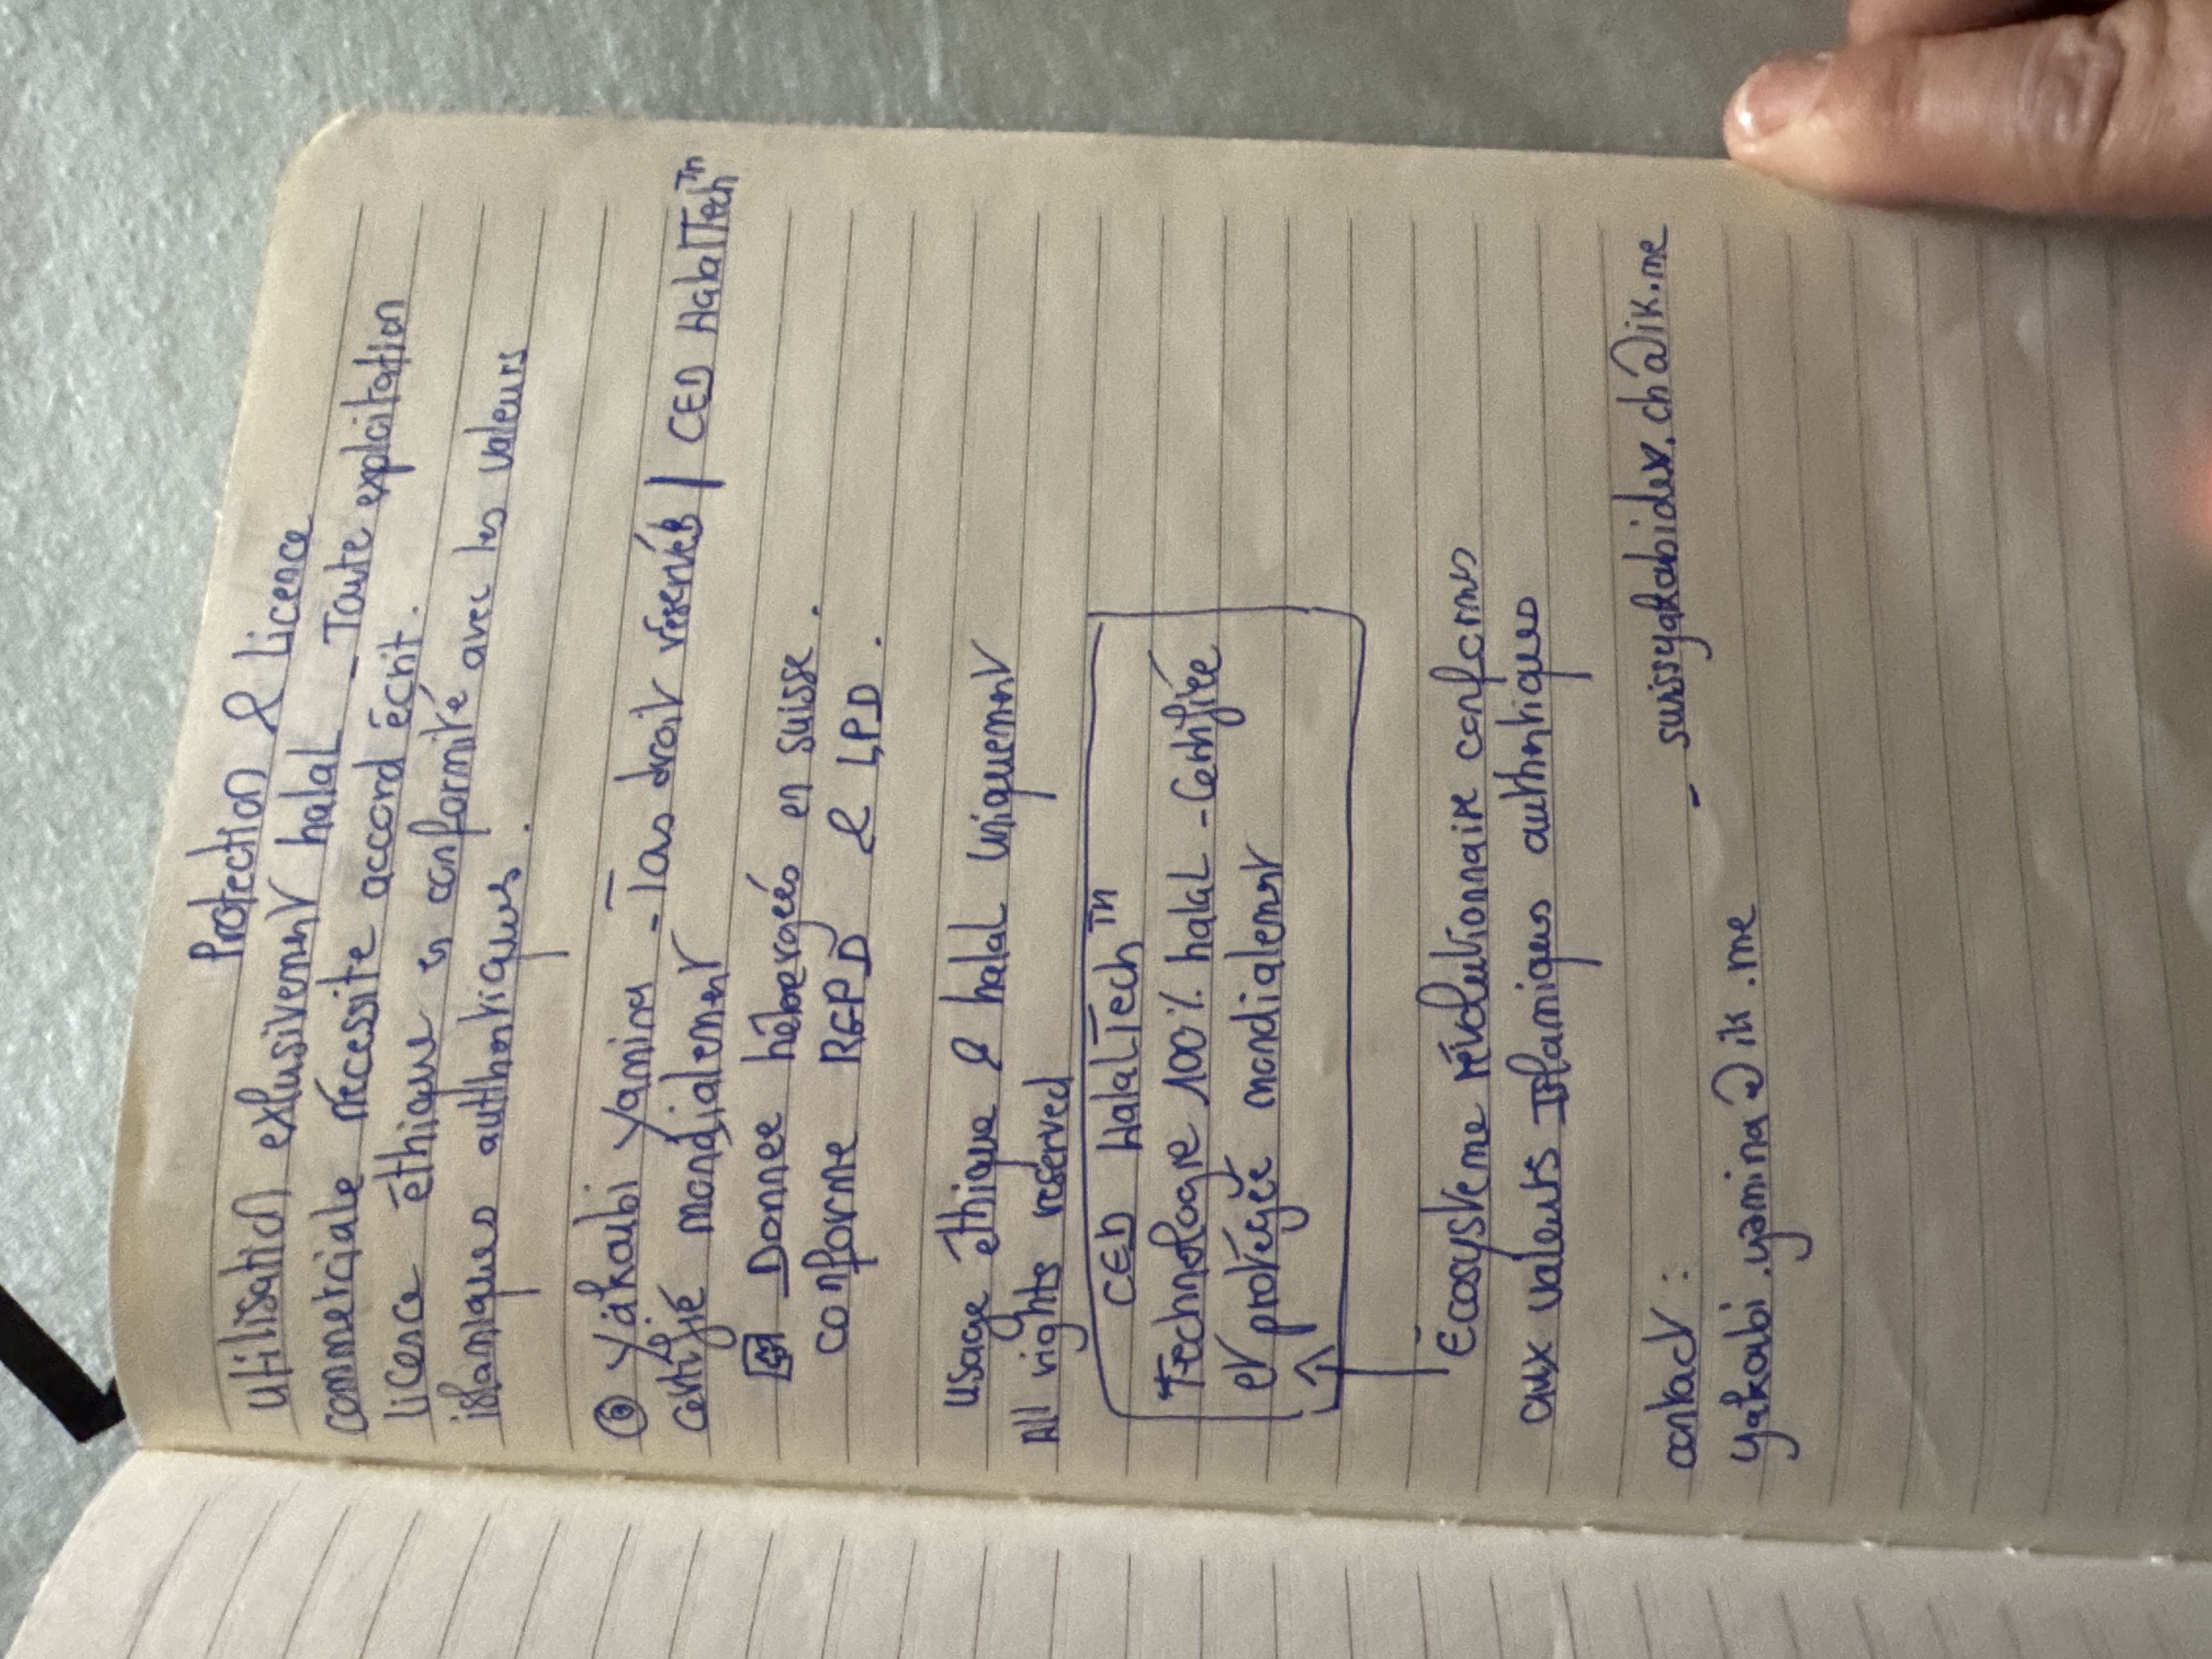 Protection & Licence
Utilisation exlusivement halal - Toute exploitation
commerciale nécessite accord écrit.
Licence éthique en conformité avec les valeurs
islamiques authentiques.
© Yakoubi Yamina - Tous droit réservés | CED HalalTech™
certifié mondialement
Donnee hébergeés en suisse.
conforme RGPD & LPD.
usage éthique & halal uniquement
All rights reserved
CED HalalTech™
Technologie 100% halal - Certifiée
et protégée mondialement
Écosysteme révolutionnaire conformes
aux valeurs Islamiques authentiques
contact :
- suissyakoubidev.ch@ik.me
yakoubi.yamina@ik.me